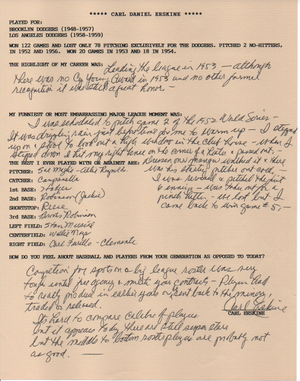 ***** CARL DANIEL ERSKINE *****
PLAYED FOR:
BROOKLYN DODGERS (1948-1957)
LOS ANGELES DODGERS (1958-1959)
WON 122 GAMES AND LOST ONLY 78 PITCHING EXCLUSIVELY FOR THE DODGERS. PITCHED 2 NO-HITTERS,
IN 1952 AND 1956. WON 20 GAMES IN 1953 AND 18 IN 1954.
THE HIGHLIGHT OF MY CAREER WAS: Leading the league in 1953 - although
there was no Cy Young Award in 1953 and no other formal
recognition it was still a great honor -
MY FUNNIEST OR MOST EMBARRASSING MAJOR LEAGUE MOMENT WAS:
I was scheduled to pitch game 2 of the 1952 World Series -
It was drizzling rain just before time to warm up - I stepped
up on a stool to look out a high window in the Club House - when I
stepped down I hit my right knee on the corner of a table & passed out -
THE BEST I EVER PLAYED WITH OR AGAINST ARE:
PITCHER: Sal Maglie - Allie Reynolds
CATCHER: Campanella
1st BASE: Hodges
2nd BASE: Robinson (Jackie)
SHORTSTOP: Reese
3rd BASE: Brooks Robinson
LEFT FIELD: Stan Musial
CENTERFIELD: Willie Mays
RIGHT FIELD: Carl Furillo - Clemente
was revived & pitched
6 innings - was taken out for a
pinch hitter - we lost but I
came back to win game #5 -
HOW DO YOU FEEL ABOUT BASEBALL AND PLAYERS FROM YOUR GENERATION AS OPPOSED TO TODAY?
Competition for spots on a big league roster was very
tough with no agency & multi year contracts - Players had
to really produce in earlier years or sent back to the minors,
traded or released.
Carl Erskine
CARL ERSKINE
It's hard to compare caliber of players
but it appears today there are still superstars
but the middle to bottom roster players are probably not
as good. -